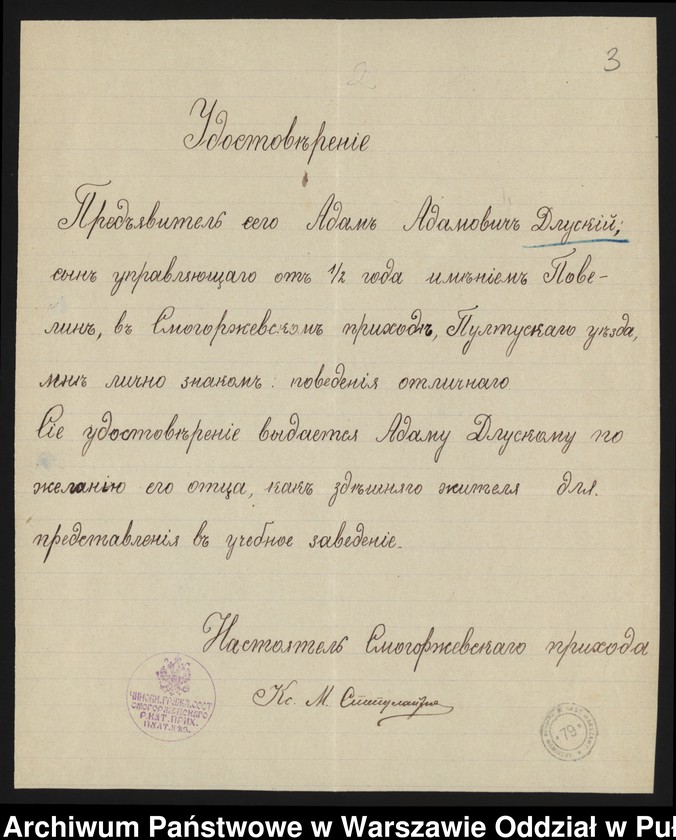 3
2
Удостовѣреніе
Предъявитель сего Адамъ Адамовичъ Длускій,
сынъ управляющаго отъ 1/2 года имѣніемъ Пове-
линъ, въ Смогоржевскомъ приходѣ, Пултускаго уѣзда,
мнѣ лично знакомъ. поведенія отличнаго
Сіе удостовѣреніе выдается Адаму Длускому по
желанію его отца, какъ здѣшняго жителя для.
представленія въ учебное заведеніе.
Настоятель Смогоржевскаго прихода
Кс. М.
ЧИНОВН. ГРАЖД. СОСТ
СМОГОРЖЕВСКАГО
Р. КАТ. ПРИХ.
79
Archiwum Państwowe w Warszawie Oddział w Puł